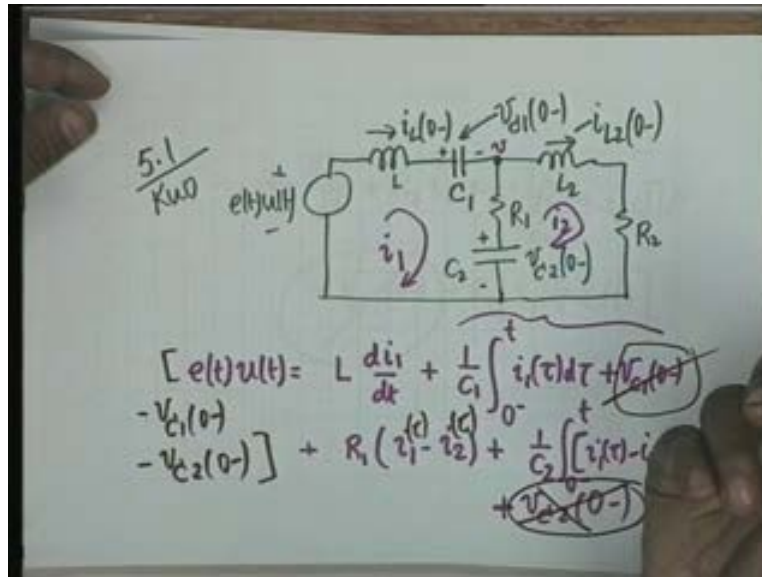 5.1
KUO
e(t)u(t)
+
-
→ i_L(0-)
L
+ -
C_1
v
L_2
→ i_{L2}(0-)
R_1
R_2
i_1
i_2
C_2
+
-
v_{C2}(0-)
[ e(t)u(t) = L di_1/dt + 1/C_1 ∫_{0-}^{t} i_1(τ)dτ + v_{C1}(0-)
- v_{C1}(0-)
- v_{C2}(0-) ] + R_1 ( i_1^{(t)} - i_2^{(t)} ) + 1/C_2 ∫_{0-}^{t} [ i_1(τ) - i
+ v_{C2}(0-)